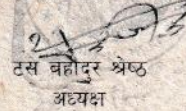 टस बहादुर श्रेष्ठ
अध्यक्ष